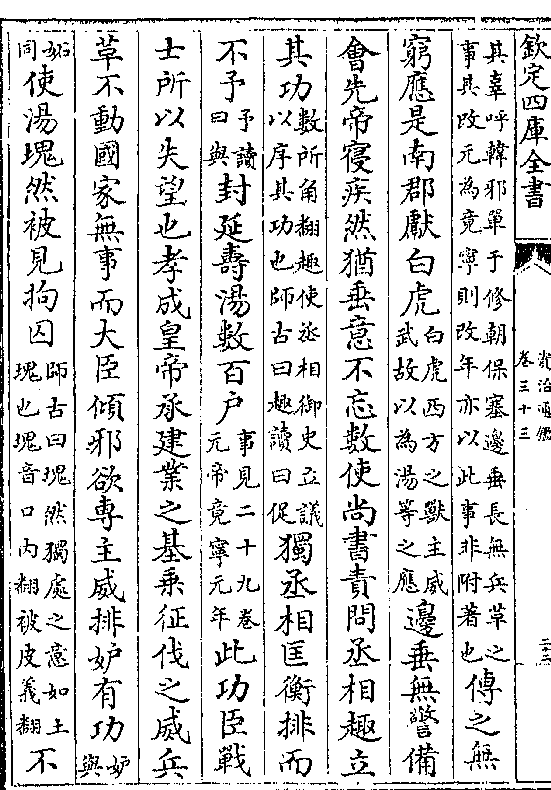 欽定四庫全書
資治通鑑
卷三十三
其辜呼韓邪單于修朝保塞邊垂長無兵革之
事其改元為竟寧則改年亦以此事非附著也
傳之無
窮應是南郡獻白虎
白虎西方之獸主威
武故以為湯等之應
邊垂無警備
會先帝寢疾然猶垂意不忘數使尚書責問丞相趣立
其功
數所角翻趣使丞相御史立議
以序其功也師古曰趣讀曰促
獨丞相匡衡排而
不予
予讀
曰與
封延壽湯數百户
事見二十九卷
元帝竟寧元年
此功臣戰
士所以失望也孝成皇帝承建業之基乘征伐之威兵
革不動國家無事而大臣傾邪欲専主威排妒有功
妒
與
妬
同
使湯塊然被見拘囚
師古曰塊然獨處之意如土
塊也塊音口内翻被皮義翻
不